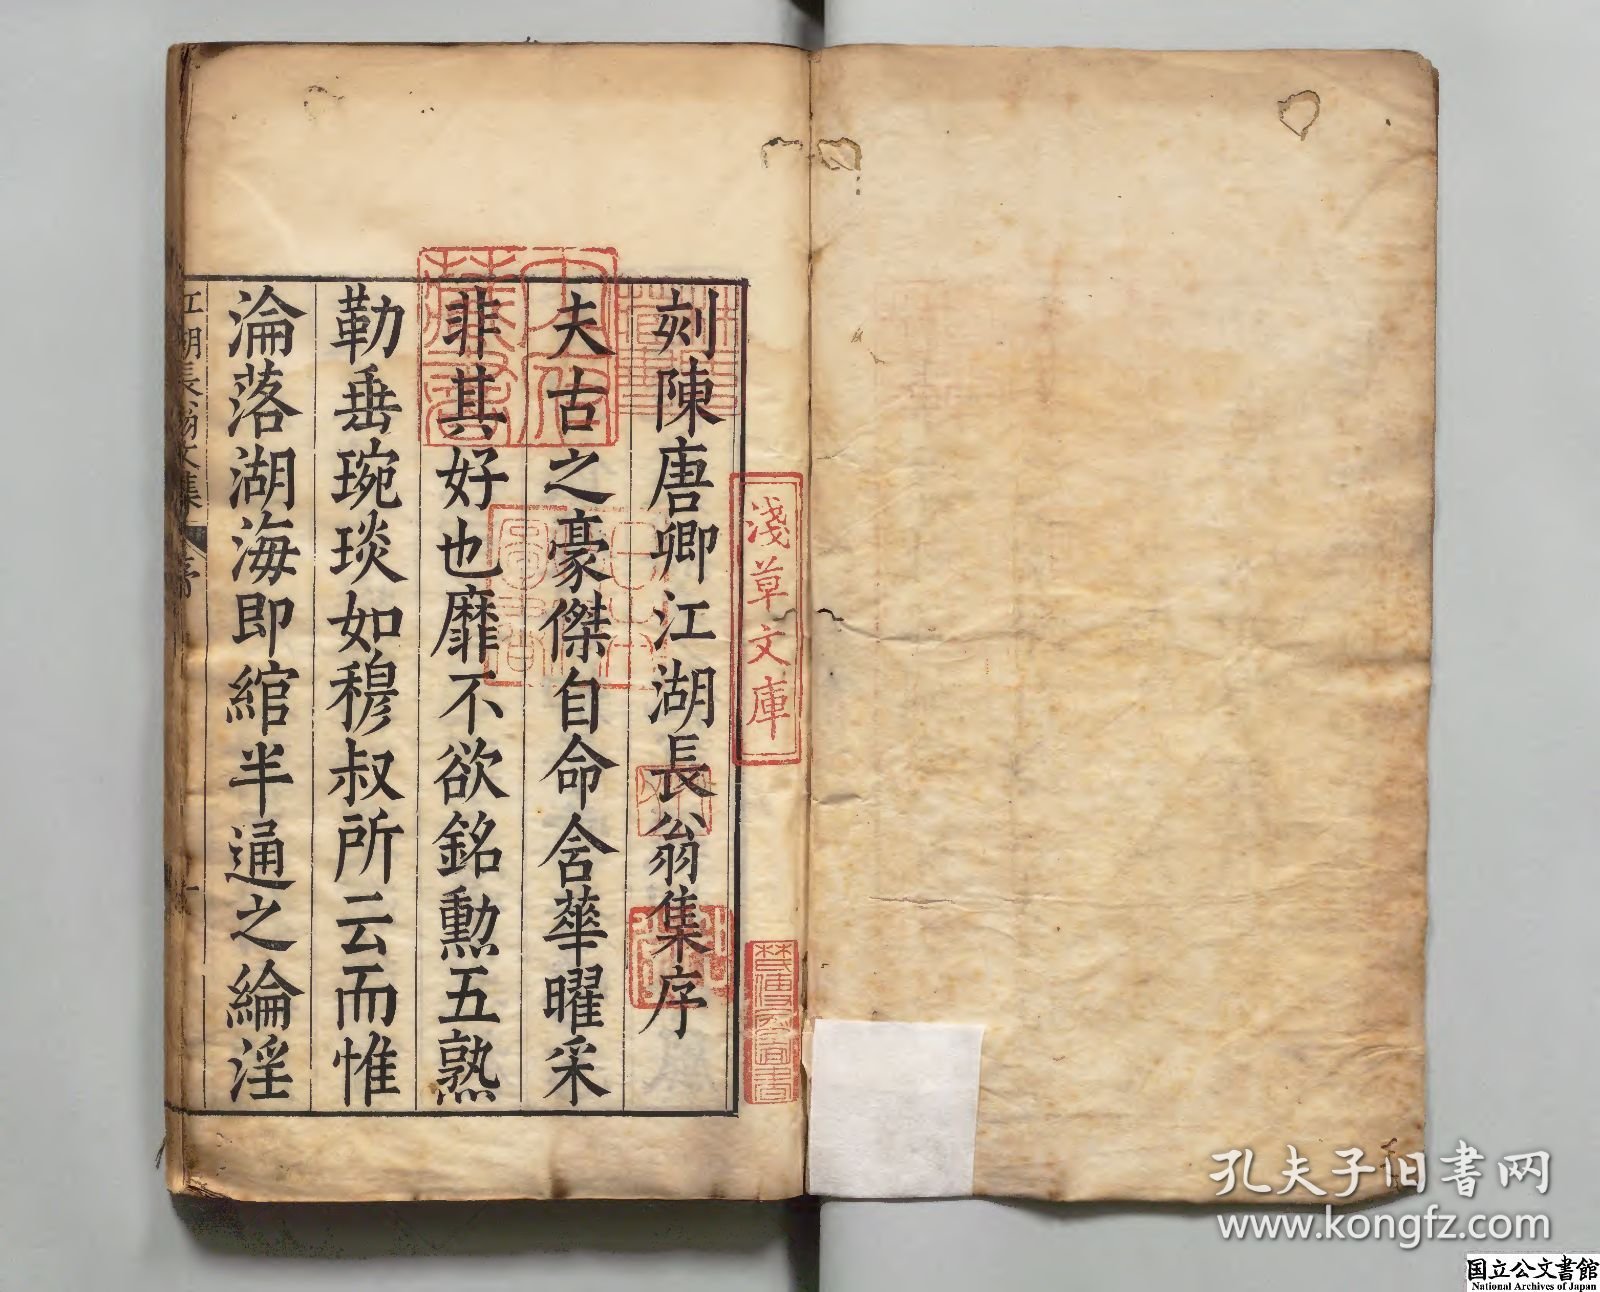 刻陳唐卿江湖長翁集序
夫古之豪傑自命含華曜采
非其好也靡不欲銘勲五熟
勒垂琬琰如穆叔所云而惟
淪落湖海即綰半通之綸淫
江湖長翁文集
序
一
淺草文庫
孔夫子旧书网
www.kongfz.com
国立公文書館
National Archives of Japan